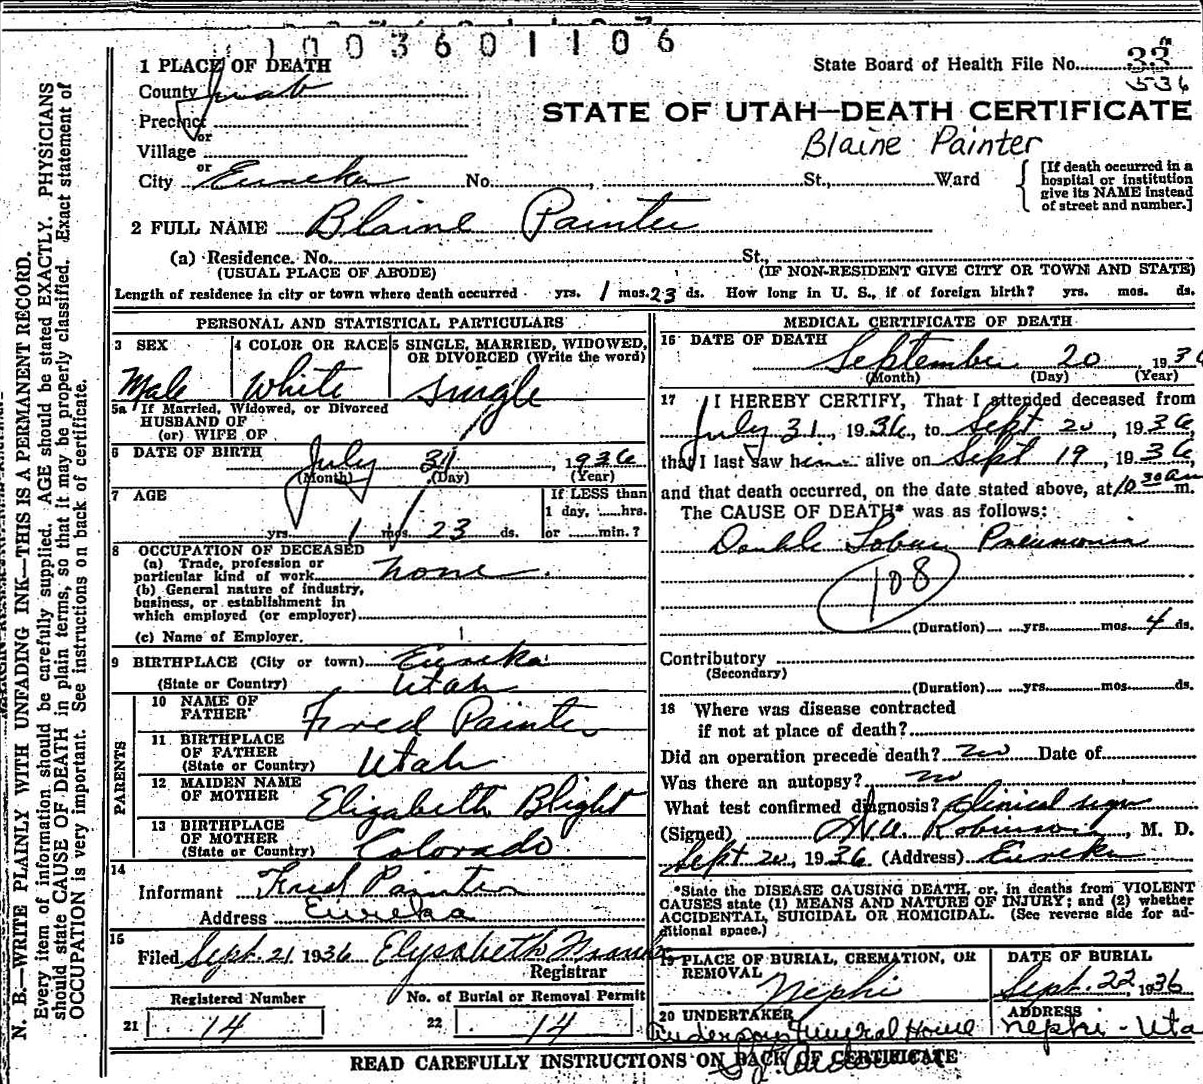 1 1 0 0 3 6 0 1 1 0 6
State Board of Health File No. 33
536
STATE OF UTAH—DEATH CERTIFICATE
Blaine Painter
1 PLACE OF DEATH
County Juab
Precinct
or
Village
or
City Eureka No. , St., Ward
[If death occurred in a
hospital or institution
give its NAME instead
of street and number.]
2 FULL NAME Blaine Painter
(a) Residence. No. St.,
(USUAL PLACE OF ABODE) (IF NON-RESIDENT GIVE CITY OR TOWN AND STATE)
Length of residence in city or town where death occurred yrs. 1 mos. 23 ds. How long in U. S., if of foreign birth? yrs. mos. ds.
PERSONAL AND STATISTICAL PARTICULARS
3 SEX 4 COLOR OR RACE 5 SINGLE, MARRIED, WIDOWED,
OR DIVORCED (Write the word)
Male White Single
5a If Married, Widowed, or Divorced
HUSBAND OF
(or) WIFE OF
6 DATE OF BIRTH July 31, 1936
(Month) (Day) (Year)
7 AGE If LESS than
1 day, ......hrs.
yrs. 1 mos. 23 ds. or ......min.?
8 OCCUPATION OF DECEASED
(a) Trade, profession or
particular kind of work none.
(b) General nature of industry,
business, or establishment in
which employed (or employer)
(c) Name of Employer.
9 BIRTHPLACE (City or town) Eureka
(State or Country) Utah
PARENTS
10 NAME OF
FATHER Fred Painter
11 BIRTHPLACE
OF FATHER
(State or Country) Utah
12 MAIDEN NAME
OF MOTHER Elizabeth Blight
13 BIRTHPLACE
OF MOTHER
(State or Country) Colorado
14
Informant Fred Painter
Address Eureka
15
Filed Sept. 21 1936 Elysabeth
Registrar
Registered Number No. of Burial or Removal Permit
21 14 22 14
MEDICAL CERTIFICATE OF DEATH
16 DATE OF DEATH
September 20 1936
(Month) (Day) (Year)
17 I HEREBY CERTIFY, That I attended deceased from
July 31, 1936, to Sept 20, 1936,
that I last saw him alive on Sept 19, 1936,
and that death occurred, on the date stated above, at 10 30 am m.
The CAUSE OF DEATH* was as follows:
Double Lobar Pneumonia
108
(Duration) yrs. mos. 4 ds.
Contributory
(Secondary)
(Duration) yrs. mos. ds.
18 Where was disease contracted
if not at place of death?
Did an operation precede death? no Date of
Was there an autopsy? no
What test confirmed diagnosis? Clinical signs
(Signed) Robinson, M. D.
Sept 20, 1936 (Address) Eureka
*State the DISEASE CAUSING DEATH, or, in deaths from VIOLENT
CAUSES state (1) MEANS AND NATURE OF INJURY; and (2) whether
ACCIDENTAL, SUICIDAL OR HOMICIDAL. (See reverse side for ad-
ditional space.)
19 PLACE OF BURIAL, CREMATION, OR
REMOVAL Nephi
DATE OF BURIAL
Sept. 22, 1936
20 UNDERTAKER
Anderson Funeral Home
ADDRESS
Nephi - Uta
READ CAREFULLY INSTRUCTIONS ON BACK OF CERTIFICATE
N. B.—WRITE PLAINLY WITH UNFADING INK—THIS IS A PERMANENT RECORD.
Every item of information should be carefully supplied. AGE should be stated EXACTLY. PHYSICIANS
should state CAUSE OF DEATH in plain terms, so that it may be properly classified. Exact statement of
OCCUPATION is very important. See instructions on back of certificate.